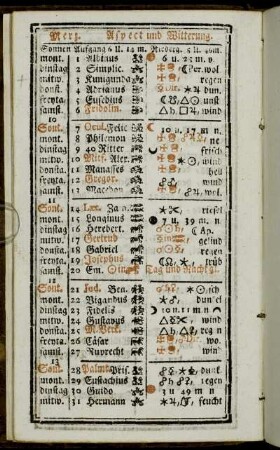 Merz. Aspect und Witterung.
Sonnen Aufgang 6 U. 14 m. Niderg. 5 U. 46 m.
mont. 1 Albinus 6 u. 23 m. v
dinstag 2 Simplic. wol
mitw. 3 Kunigunda regen
donsta. 4 Adrianus dun.
freyta. 5 Eusebius unst
samst. 6 Fridolin wind
10
Sont. 7 Felic 10 u. 17 m n.
mont. 8 Philemon ne
dinstag 9 40 Ritter frisch
mitw. 10 Mitf. Alex. wind
donsta. 11 Manasses hell
freyta. 12 Gregor. wind
samst. 13 Macedon wol.
11
Sont. 14 Læt. Zach. riesel
mont. 15 Longinus 7 u. 39 m. n
dinstag 16 Herebert. Ap.
mitw. 17 Gertrud gelind
donsta. 18 Gabriel regen
freyta. 19 Josephus trüb
samst. 20 Em. in Tag und Nacht gl.
12
Sont. 21 Jud. Ben. sch
mont. 22 Vigandus dunkel
dinstag 23 Fidelis 10 u. 11 m n
mitw. 24 Gustavus wind
donsta. 25 M. Verk. regen
freyta. 26 Cäsar wo.
samst. 27 Ruprecht wind
13
Sont. 28 Palmt. Pris. dun.
mont. 29 Eustachius regen
dinstag 30 Guido 3 u 49 m n
mitw. 31 Hermann feucht